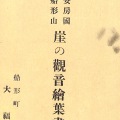 安房國
船形山
崖の觀音繪葉書
船形町
大福